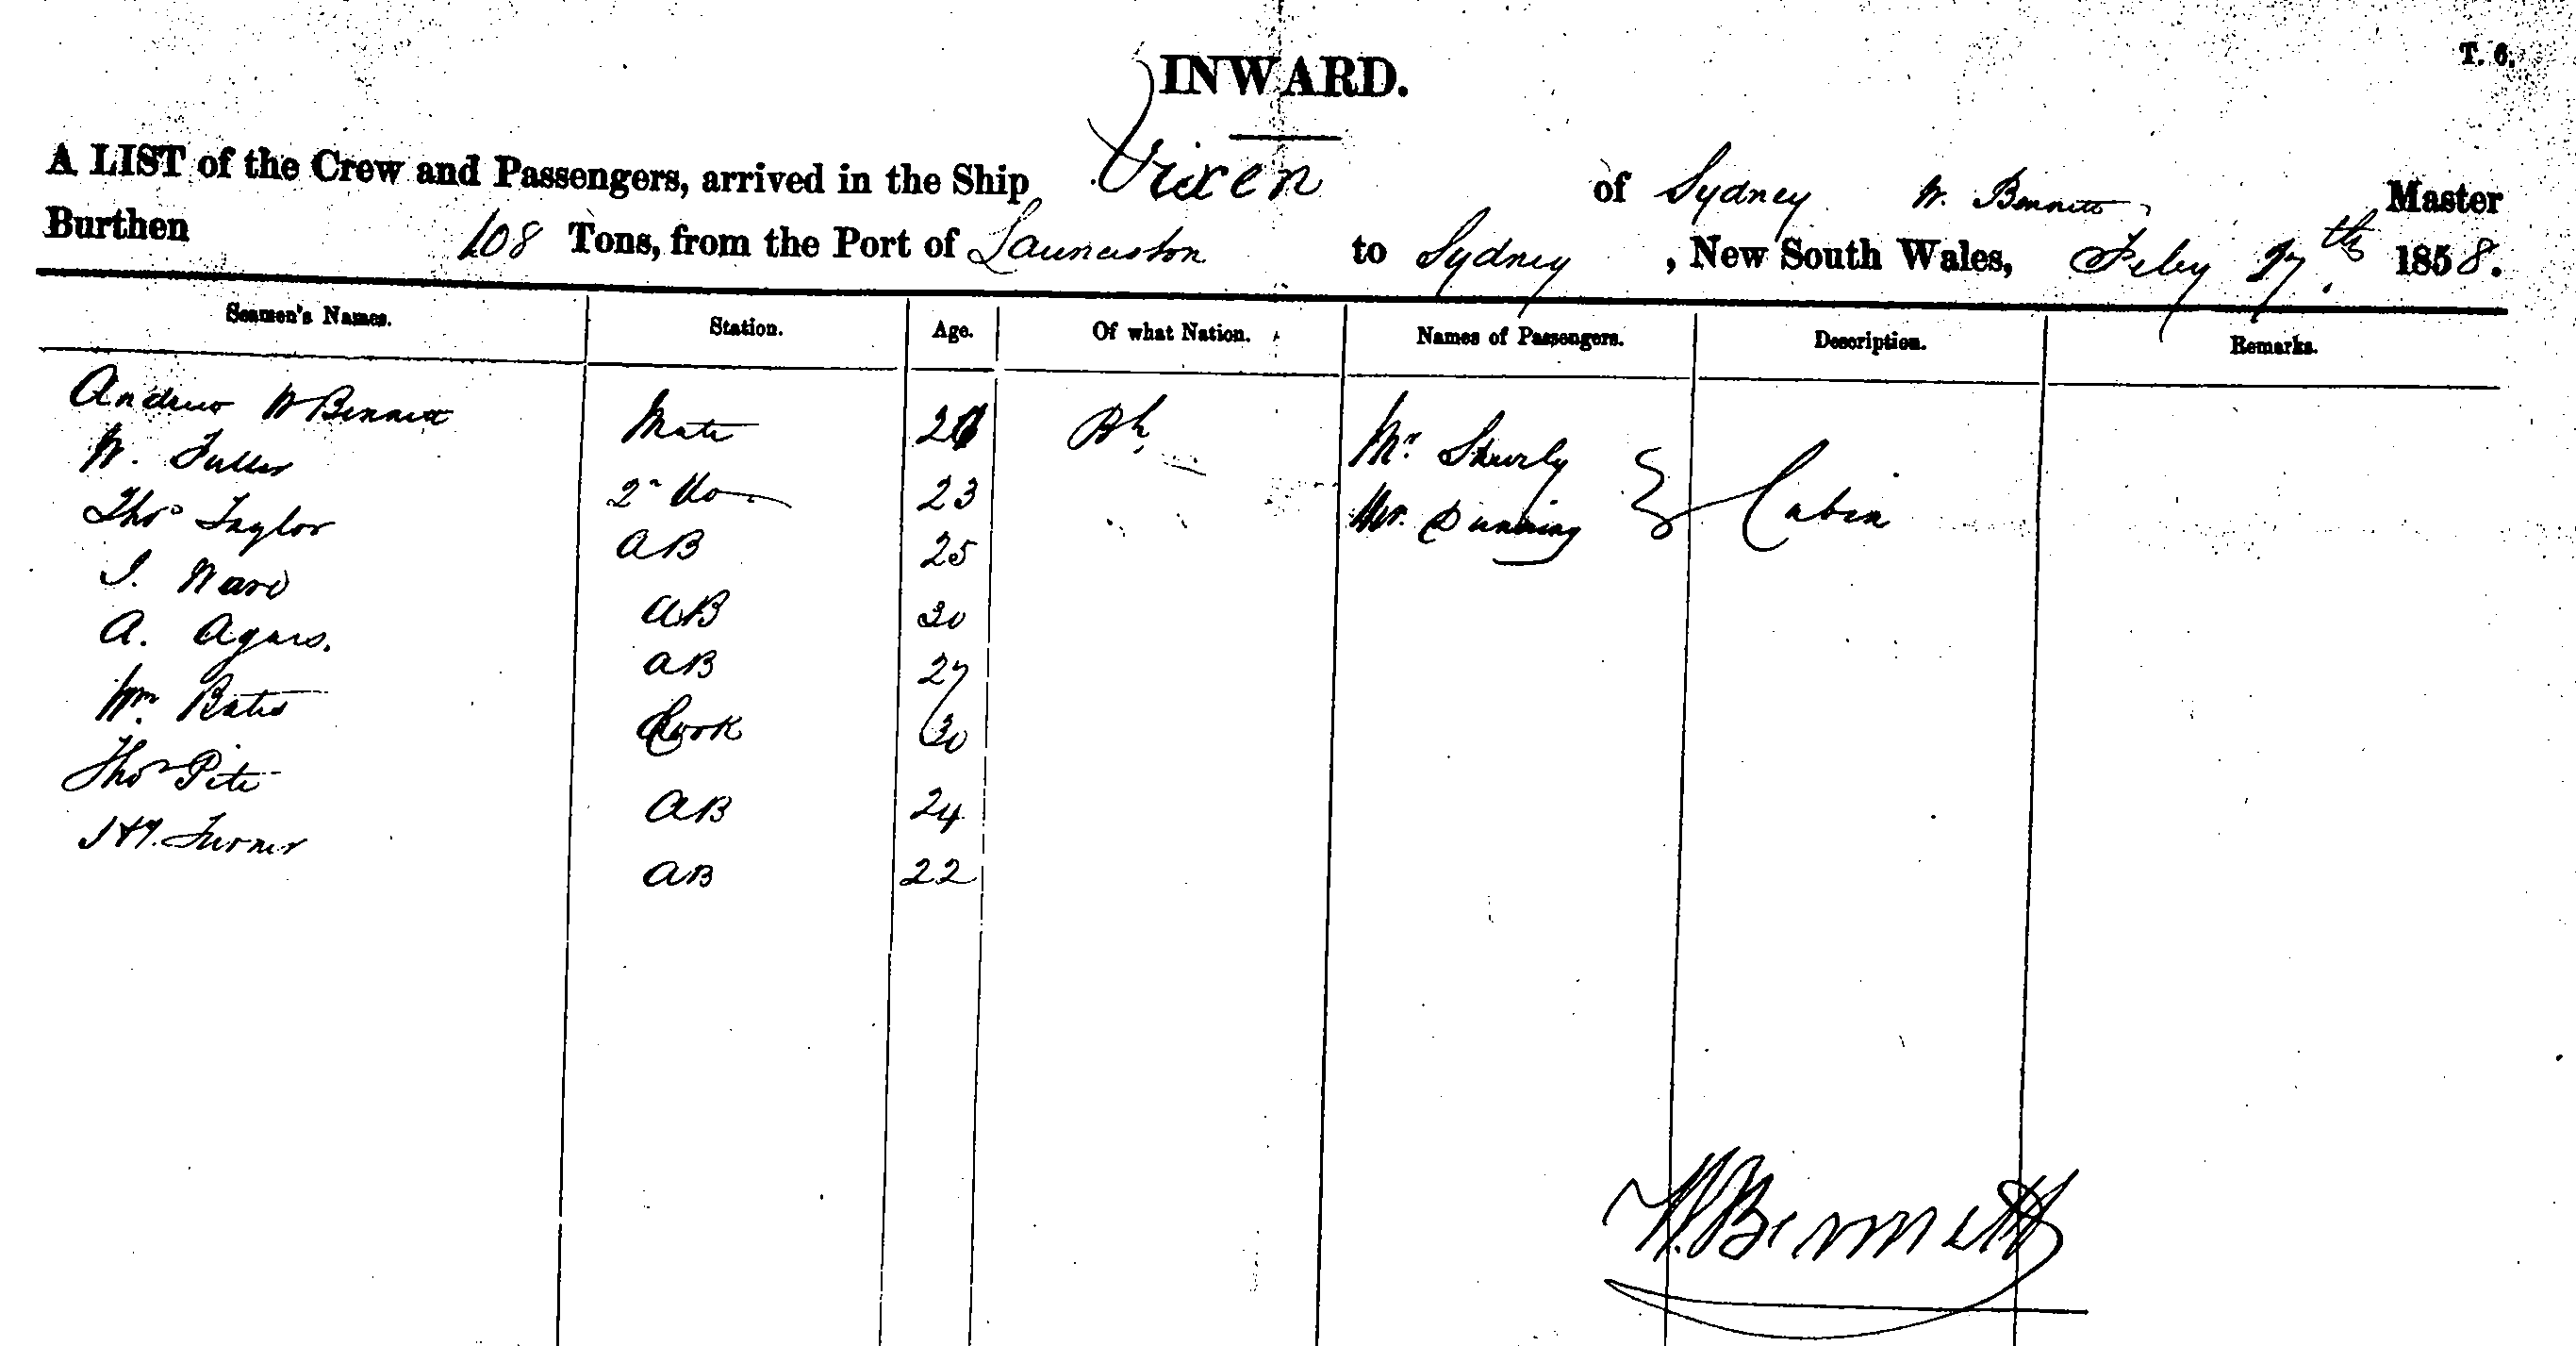 T. 6.
INWARD.
A LIST of the Crew and Passengers, arrived in the Ship Vixen of Sydney W. Bennett Master
Burthen 108 Tons, from the Port of Launceston to Sydney, New South Wales, Feby 27th 1858.
Seamen's Names. Station. Age. Of what Nation. Names of Passengers. Description. Remarks.
Andrew W Bennett Mate 26 Bh Mr. Cabin
W. Fuller 2nd Do 23 Mr. Dunning
Thos Taylor AB 25
J. Ward AB 30
A. Agars. AB 27
Wm. Bates Cook 30
Thos Pite AB 24
Turner AB 22
W. Bennett